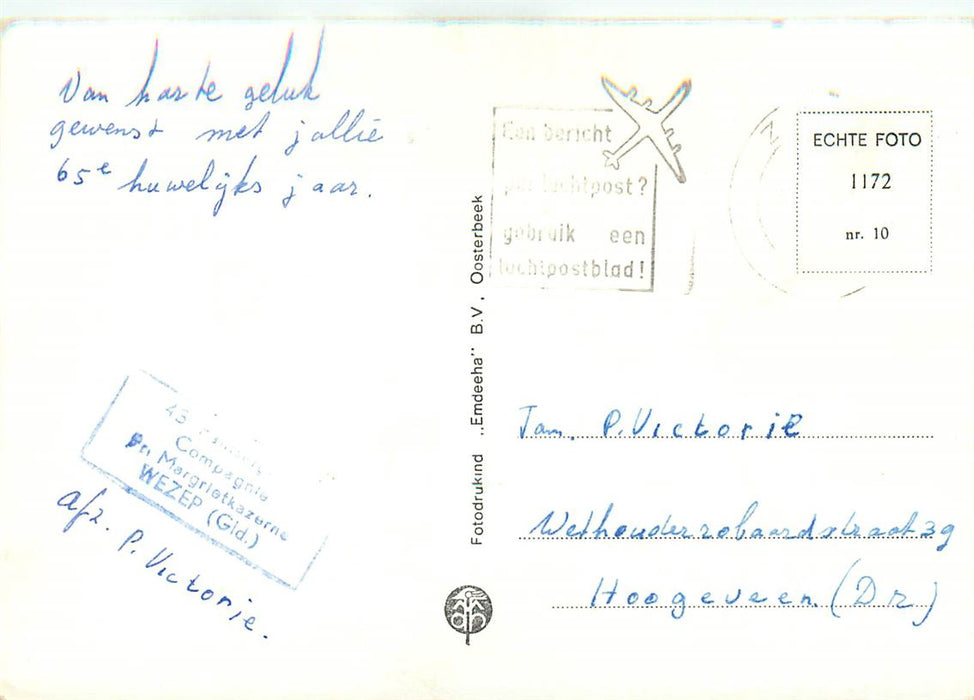 Van harte geluk
gewenst met jallie
65e huwelijks jaar.
45
Compagnie
Pri Margrietkazerne
WEZEP (Gld.)
afz. P. Victorie.
Fotodrukind „Emdeeha” B.V., Oosterbeek
Een bericht
per luchtpost?
gebruik een
luchtpostblad!
ECHTE FOTO
1172
nr. 10
Fam. P. Victorie
Hoogeveen (Dr)